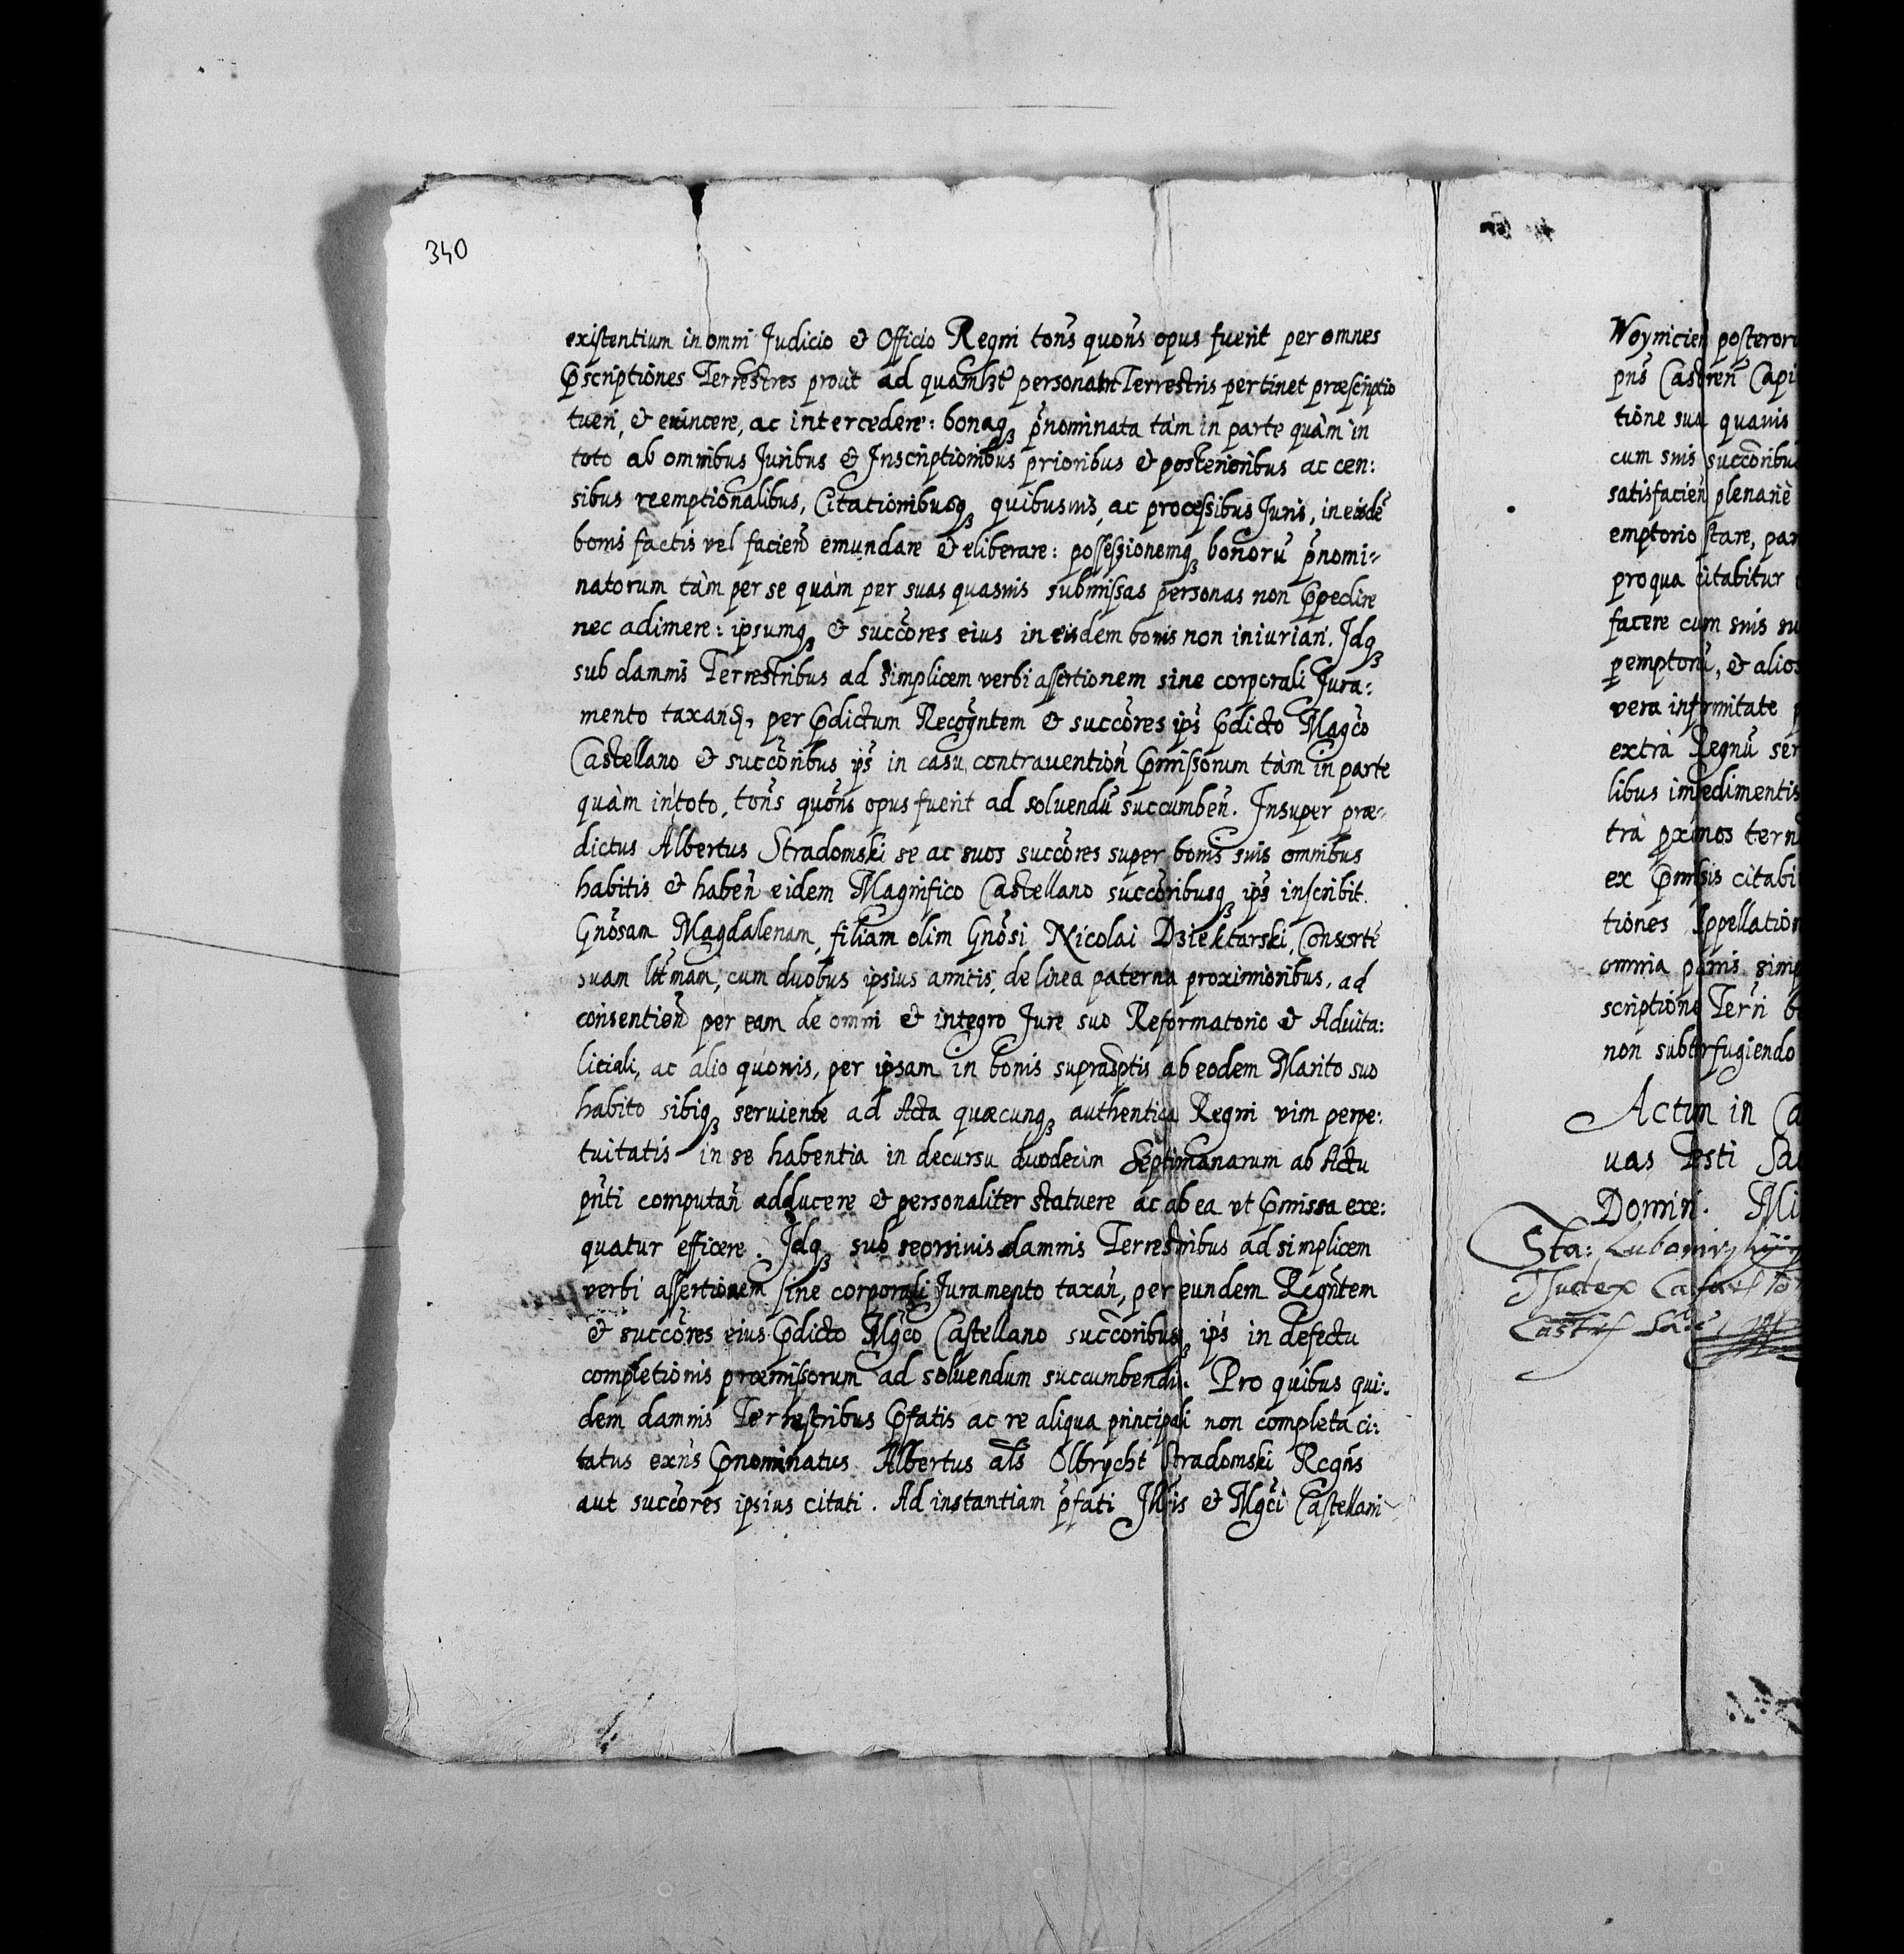 340
existentium in omni Judicio & Officio Regni tons̄ quons̄ opus fuerit per omnes
Pscriptiones Terrestres prout ad quamlꝫt personam Terrestris pertinet præscriptio
tueri, & euincere, ac intercedere: bonaqꝫ p̄nominata tàm in parte quàm in
toto ab omnibus Juribus & Inscriptionibus prioribus & posterioribus ac cen:
sibus reemptionalibus, Citationibusqꝫ quibusuis, ac processibus Juris, in eisdē
bonis factis vel facien̄ emundare & eliberare: possessionemqꝫ bonorū p̄nomi-
natorum tàm per se quàm per suas quasuis submissas personas non Ppedire
nec adimere: ipsumqꝫ & succōres eius in eisdem bonis non iniuriari. Jdqꝫ
sub damnis Terrestribus ad simplicem verbi assertionem sine corporali Jura:
mento taxan̄d, per Pdictum Recogn̄tem & succōres ips̄ Pdicto Magc̄o
Castellano & succōribus ips̄ in casu contrauention̄ Pmissorum tàm in parte
quàm in toto, tons̄ quōns opus fuerit ad soluendū succumben̄. Insuper præ-
dictus Albertus Stradomski se ac suos succōres super bonis suis omnibus
habitis & haben̄ eidem Magnifico Castellano succōribusqꝫ ips̄ inscribit.
Gnōsam Magdalenam, filiam olim Gnōsi Nicolai Dziektarski, Consortē
suam lit̄mam, cum duobus ipsius amicis, de linea paterna proximioribus, ad
consentien̄d per eam de omni & integro Jure suo Reformatorio & Aduita:
litiali, ac alio quouis, per ipsam in bonis suprascp̄tis ab eodem Marito suo
habito sibiqꝫ seruiente ad Acta quæcunqꝫ authentica Regni vim perpe:
tuitatis in se habentia in decursu duodecim Septimanarum ab Actu
pn̄ti computan̄ adducere & personaliter statuere ac ab ea vt Pmissa exe:
quatur efficere. Jdqꝫ sub seorsiuis damnis Terrestribus ad simplicem
verbi assertionem sine corporali Juramento taxan̄, per eundem Recgn̄tem
& succōres eius Pdicto Mgc̄o Castellano succōribusqꝫ ips̄ in defectu
completionis præmissorum ad soluendum succumbendis. Pro quibus qui:
dem damnis Terrestribus Pfatis ac re aliqua principali non completa ci:
tatus exn̄s Pnominatus Albertus als̄ Olbrycht Stradomski Recgn̄s
aut succōres ipsius citati. Ad instantiam p̄fati Jllr̄is & Mgc̄i Castellani
Woynicien posteror
pn̄s Castren̄ Capi
tione sua quauis
cum suis succōribu
satisfacien̄ plenariè
emptorio stare, par
pro qua citabitur
facere cum suis su
pemptoriū, & alios
vera infirmitate p
extrà Regnū ser
libus impedimentis
trà pximos terni
ex Pmissis citabi
tiones Appellation
omnia pmis simp
scriptione Terri b
non subterfugiendo
Actum in Ca
uas Festi Sa
Domini. Mi
Sta: Lubomirsky
Judex
Castr̄